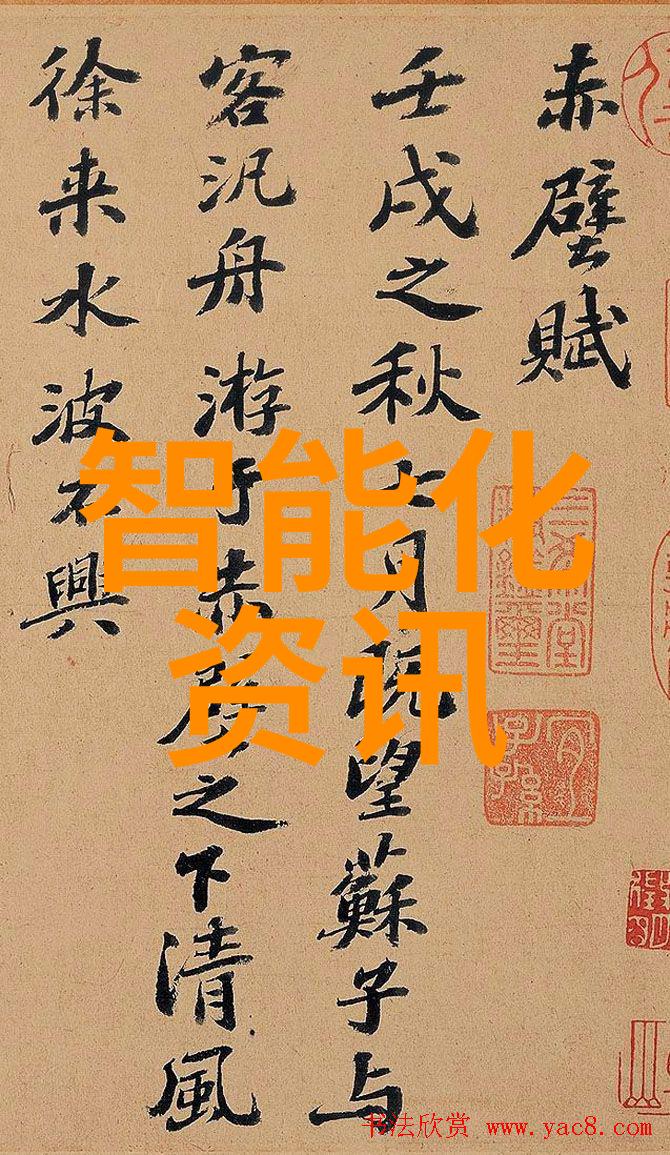 赤壁賦
壬戌之秋七月既望蘇子与
客汎舟游于赤壁之下清風
徐来水波不興
智能化
资讯
三希堂
精鑑璽
宜子孫
书法欣赏 www.yac8.com